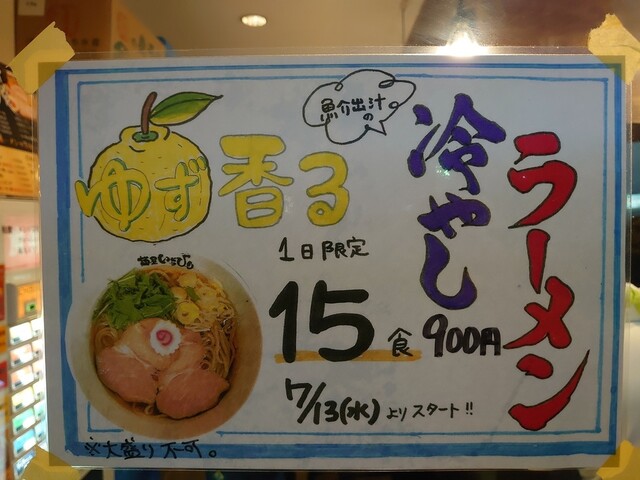 魚介出汁の
ゆず香る
冷やし
ラーメン
1日限定
15食
900円
7/13(水)よりスタート!!
※大盛り不可。